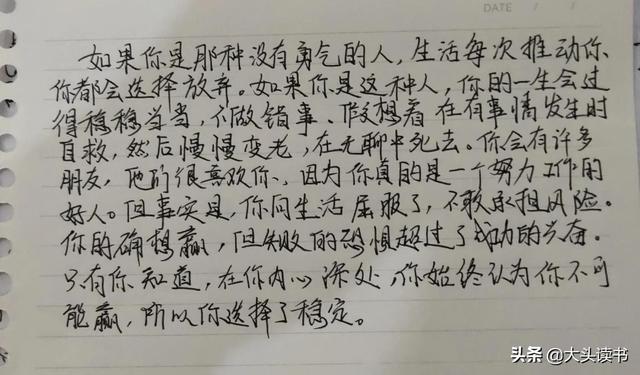 DATE
如果你是那种没有勇气的人,生活每次推动你
你都会选择放弃。如果你是这种人,你的一生会过
得稳稳当当,不做错事、假想着在有事情发生时
自救,然后慢慢变老,在无聊中死去。你会有许多
朋友,他们很喜欢你,因为你真的是一个努力工作的
好人。但事实是,你向生活屈服了,不敢承担风险。
你的确想赢,但失败的恐惧超过了成功的兴奋。
只有你知道,在你内心深处,你始终认为你不可
能赢,所以你选择了稳定。
头条 @大头读书